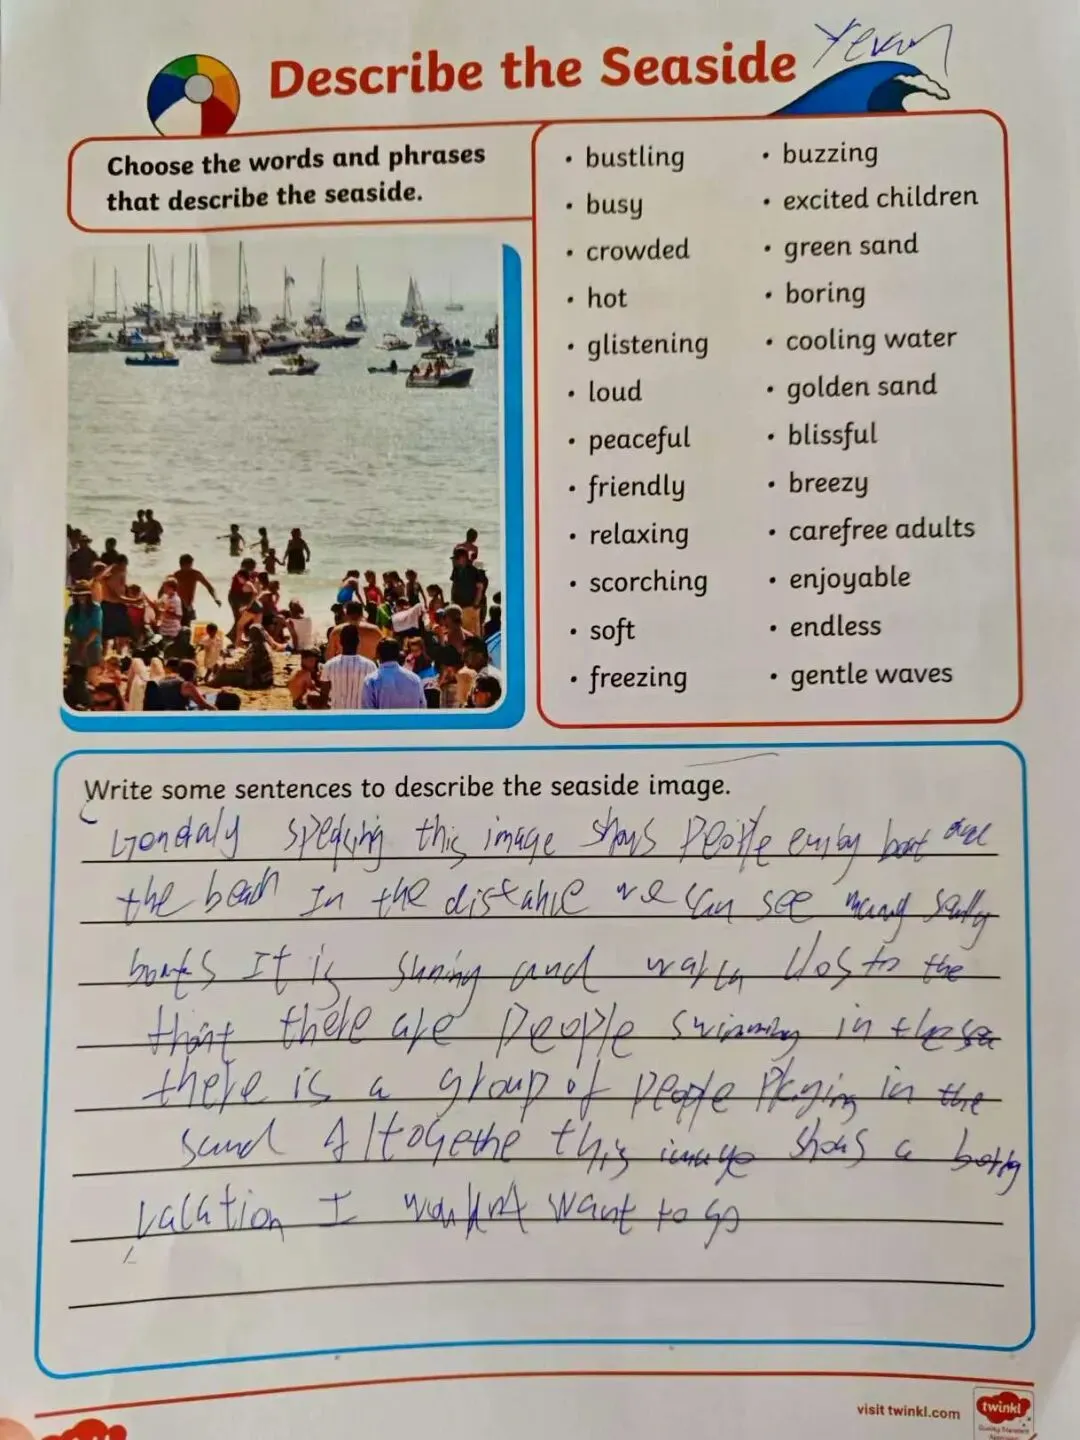 Describe the Seaside
Choose the words and phrases
that describe the seaside.
• bustling
• busy
• crowded
• hot
• glistening
• loud
• peaceful
• friendly
• relaxing
• scorching
• soft
• freezing
• buzzing
• excited children
• green sand
• boring
• cooling water
• golden sand
• blissful
• breezy
• carefree adults
• enjoyable
• endless
• gentle waves
Write some sentences to describe the seaside image.
this image shows People
the In the distance we can see many
boats It is and to the
there are People swimming in the sea
there is a group of people playing in the
sand Altogethe this image shows a
vacation I want to go
visit twinkl.com
twinkl